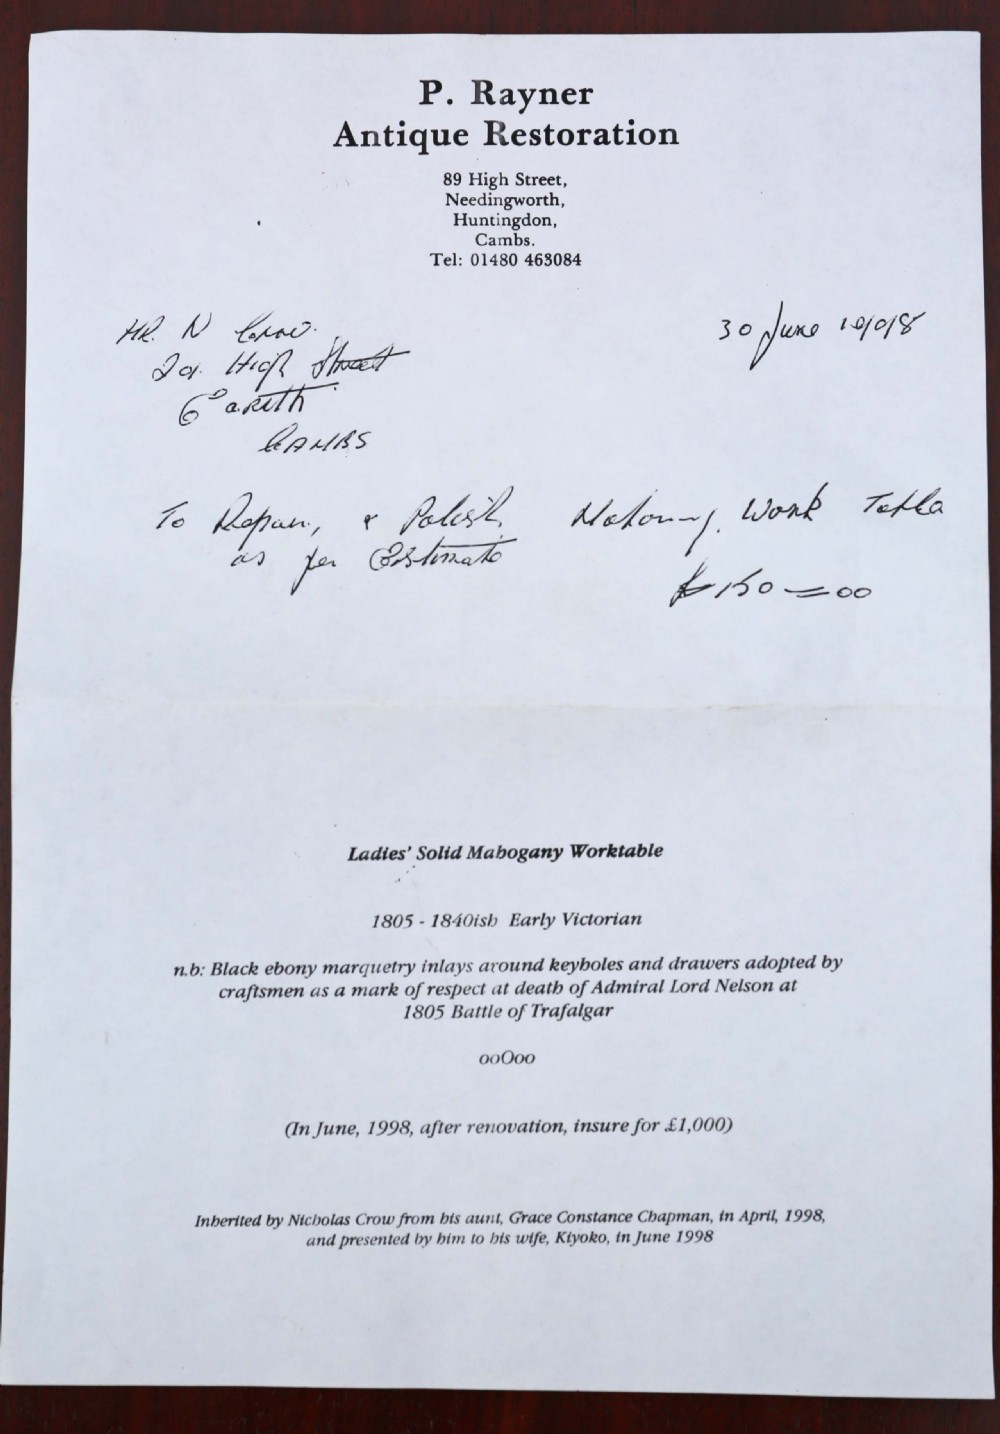 P. Rayner
Antique Restoration
89 High Street,
Needingworth,
Huntingdon,
Cambs.
Tel: 01480 463084
MR. N Crow.
30 June
High Street
Earith
CAMBS
To Repair, & Polish Mahogany Work Table
as per Estimate
£150=00
Ladies' Solid Mahogany Worktable
1805 - 1840ish Early Victorian
n.b: Black ebony marquetry inlays around keyholes and drawers adopted by
craftsmen as a mark of respect at death of Admiral Lord Nelson at
1805 Battle of Trafalgar
ooOoo
(In June, 1998, after renovation, insure for £1,000)
Inherited by Nicholas Crow from his aunt, Grace Constance Chapman, in April, 1998,
and presented by him to his wife, Kiyoko, in June 1998